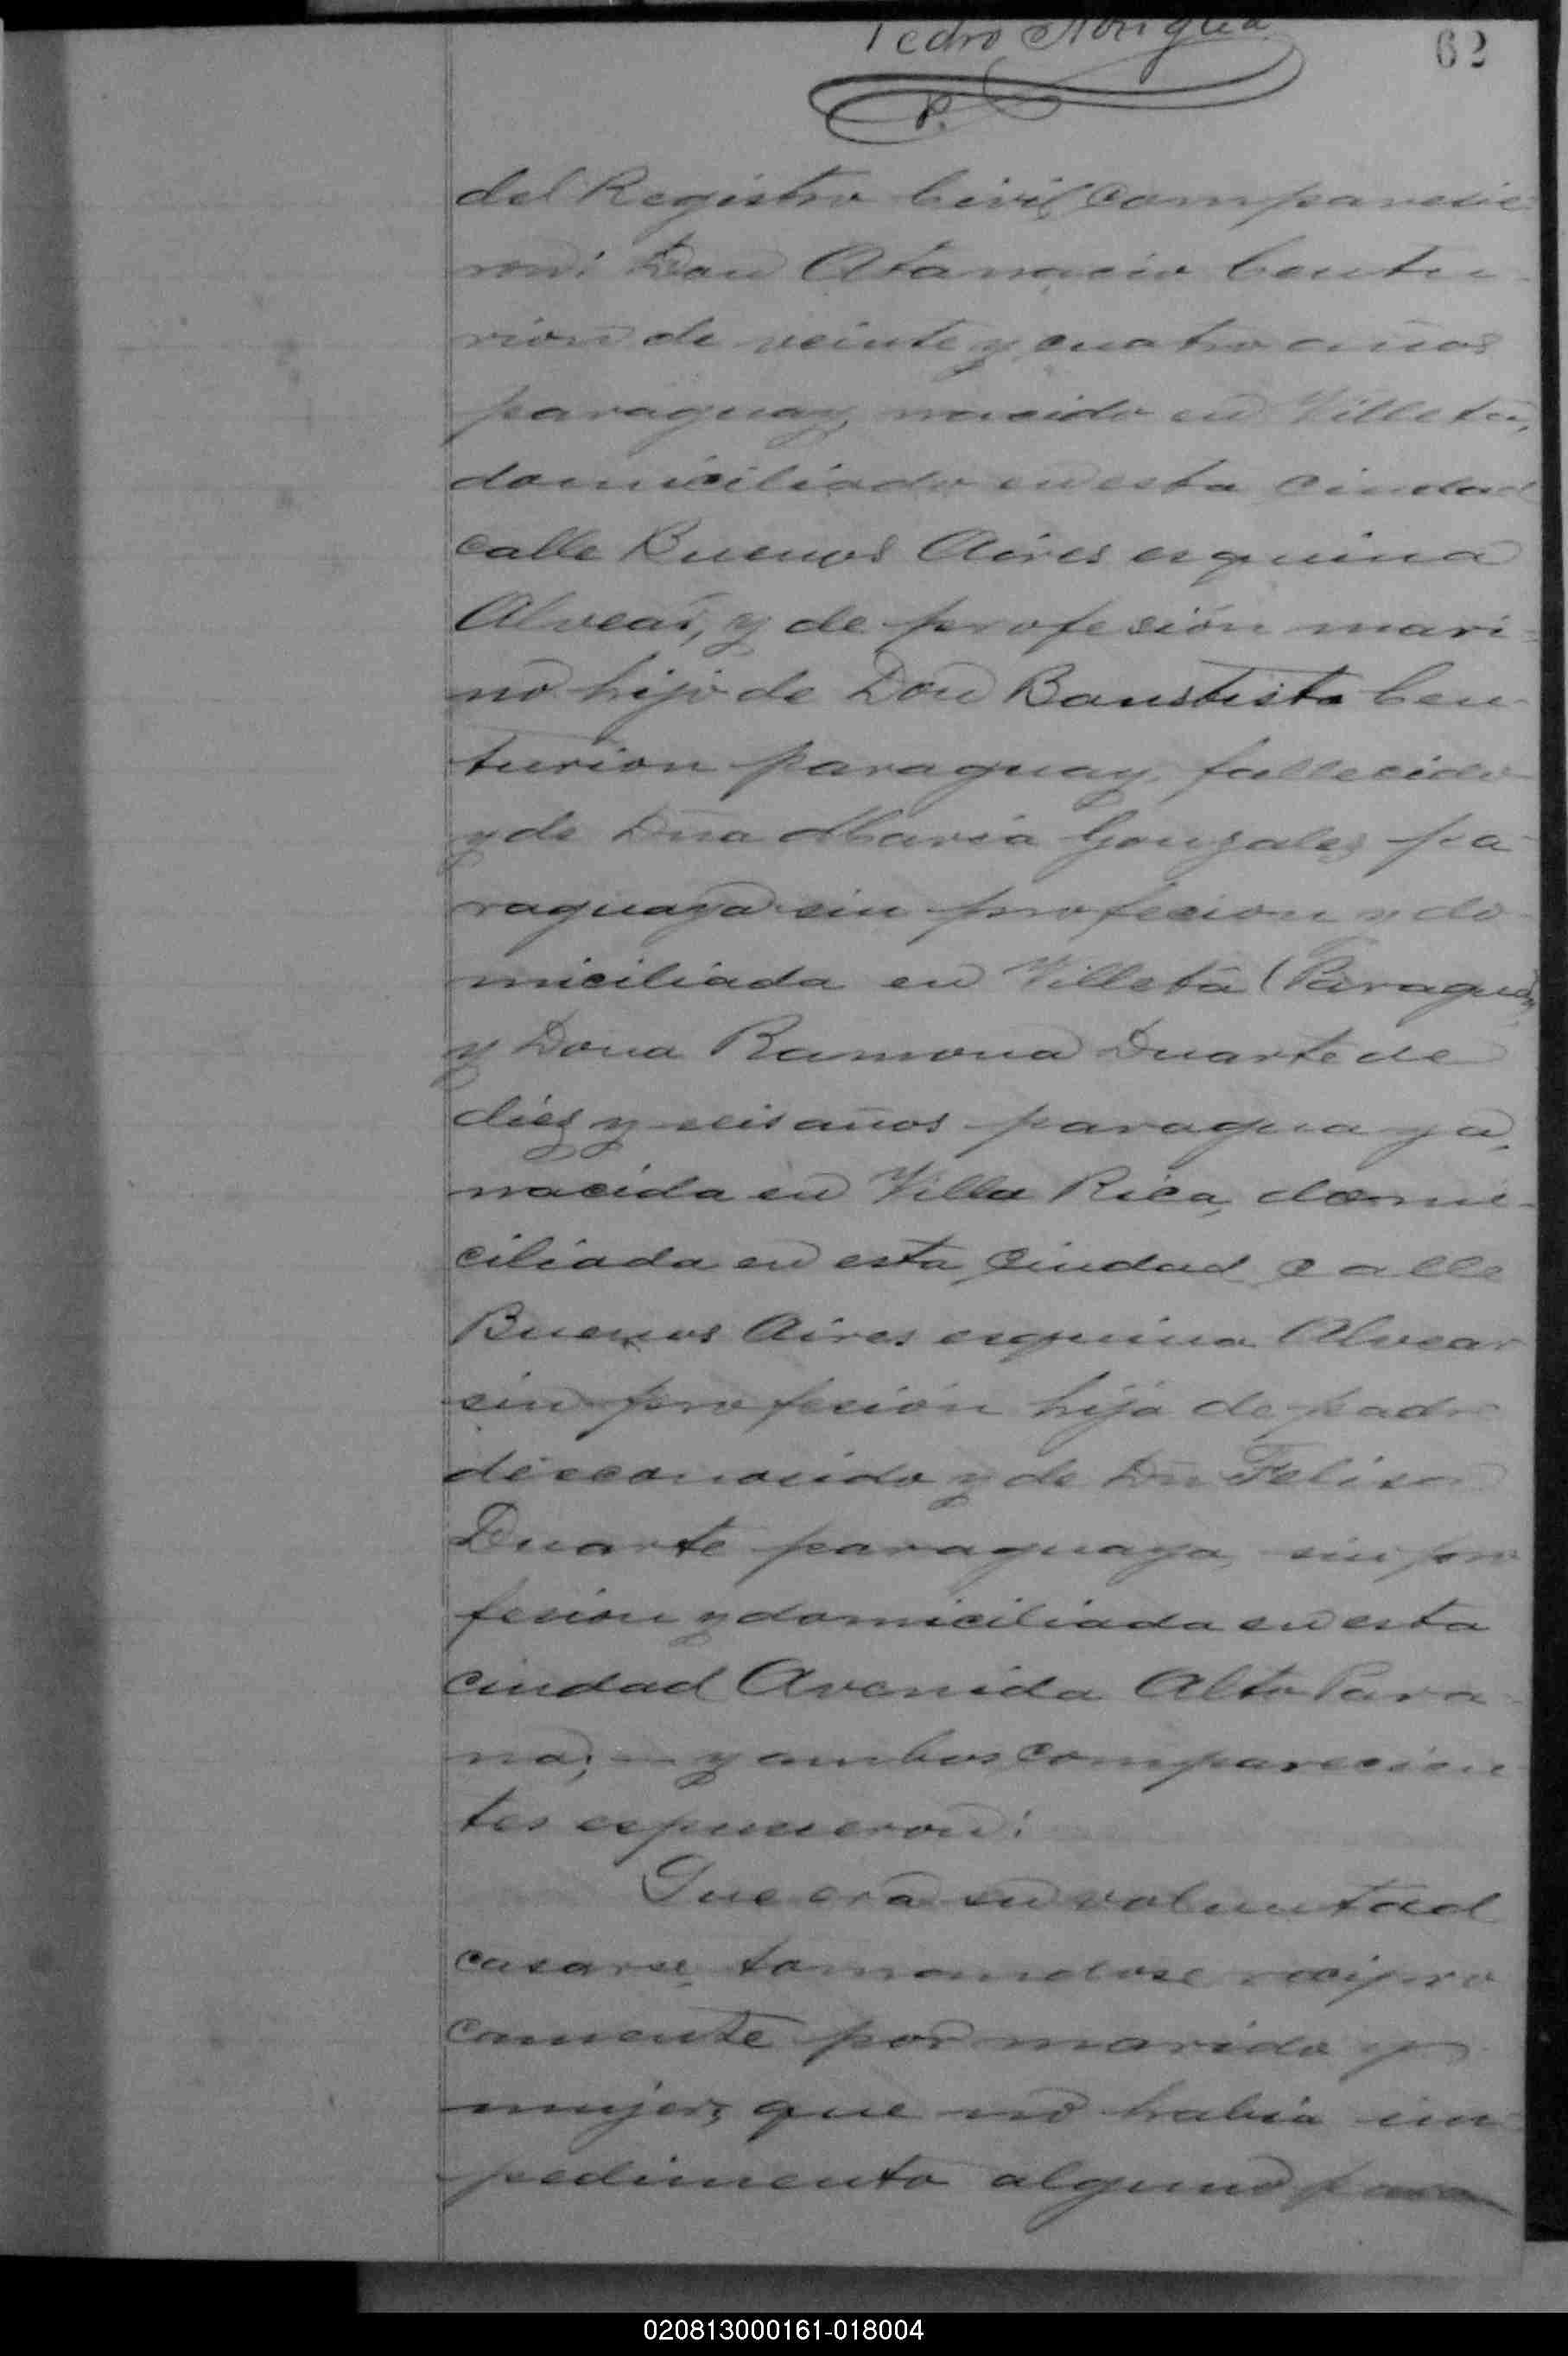 Pedro Noriega
62
P.
del Registro Civil comparecie-
ron: Don Atanacio Centu-
rion de veinte y cuatro años
paraguay, nacido en Villeta,
domiciliado en esta ciudad
calle Buenos Aires esquina
Alvear, y de profesión mari=
no hijo de Don Baustista Cen-
turion paraguay, fallecido
y de Dña Maria Gonzalez pa-
raguaya sin profesion y do-
miciliada en Villeta (Paraguay)
y Dona Ramona Duarte de
diez y seis años paraguaya,
nacida en Villa Rica, domi-
ciliada en esta ciudad calle
Buenos Aires esquina Alvear
sin profesión hija de padre
desconocido y de Dñ Felisa
Duarte paraguaya, sin pro
fesion y domiciliada en esta
ciudad Avenida Alto Para-
na; — y ambos comparecien
tes espusieron:
Que era su voluntad
casarse, tomandose recipro
camente por marido y
mujer; que no habia im-
pedimento alguno para
020813000161-018004